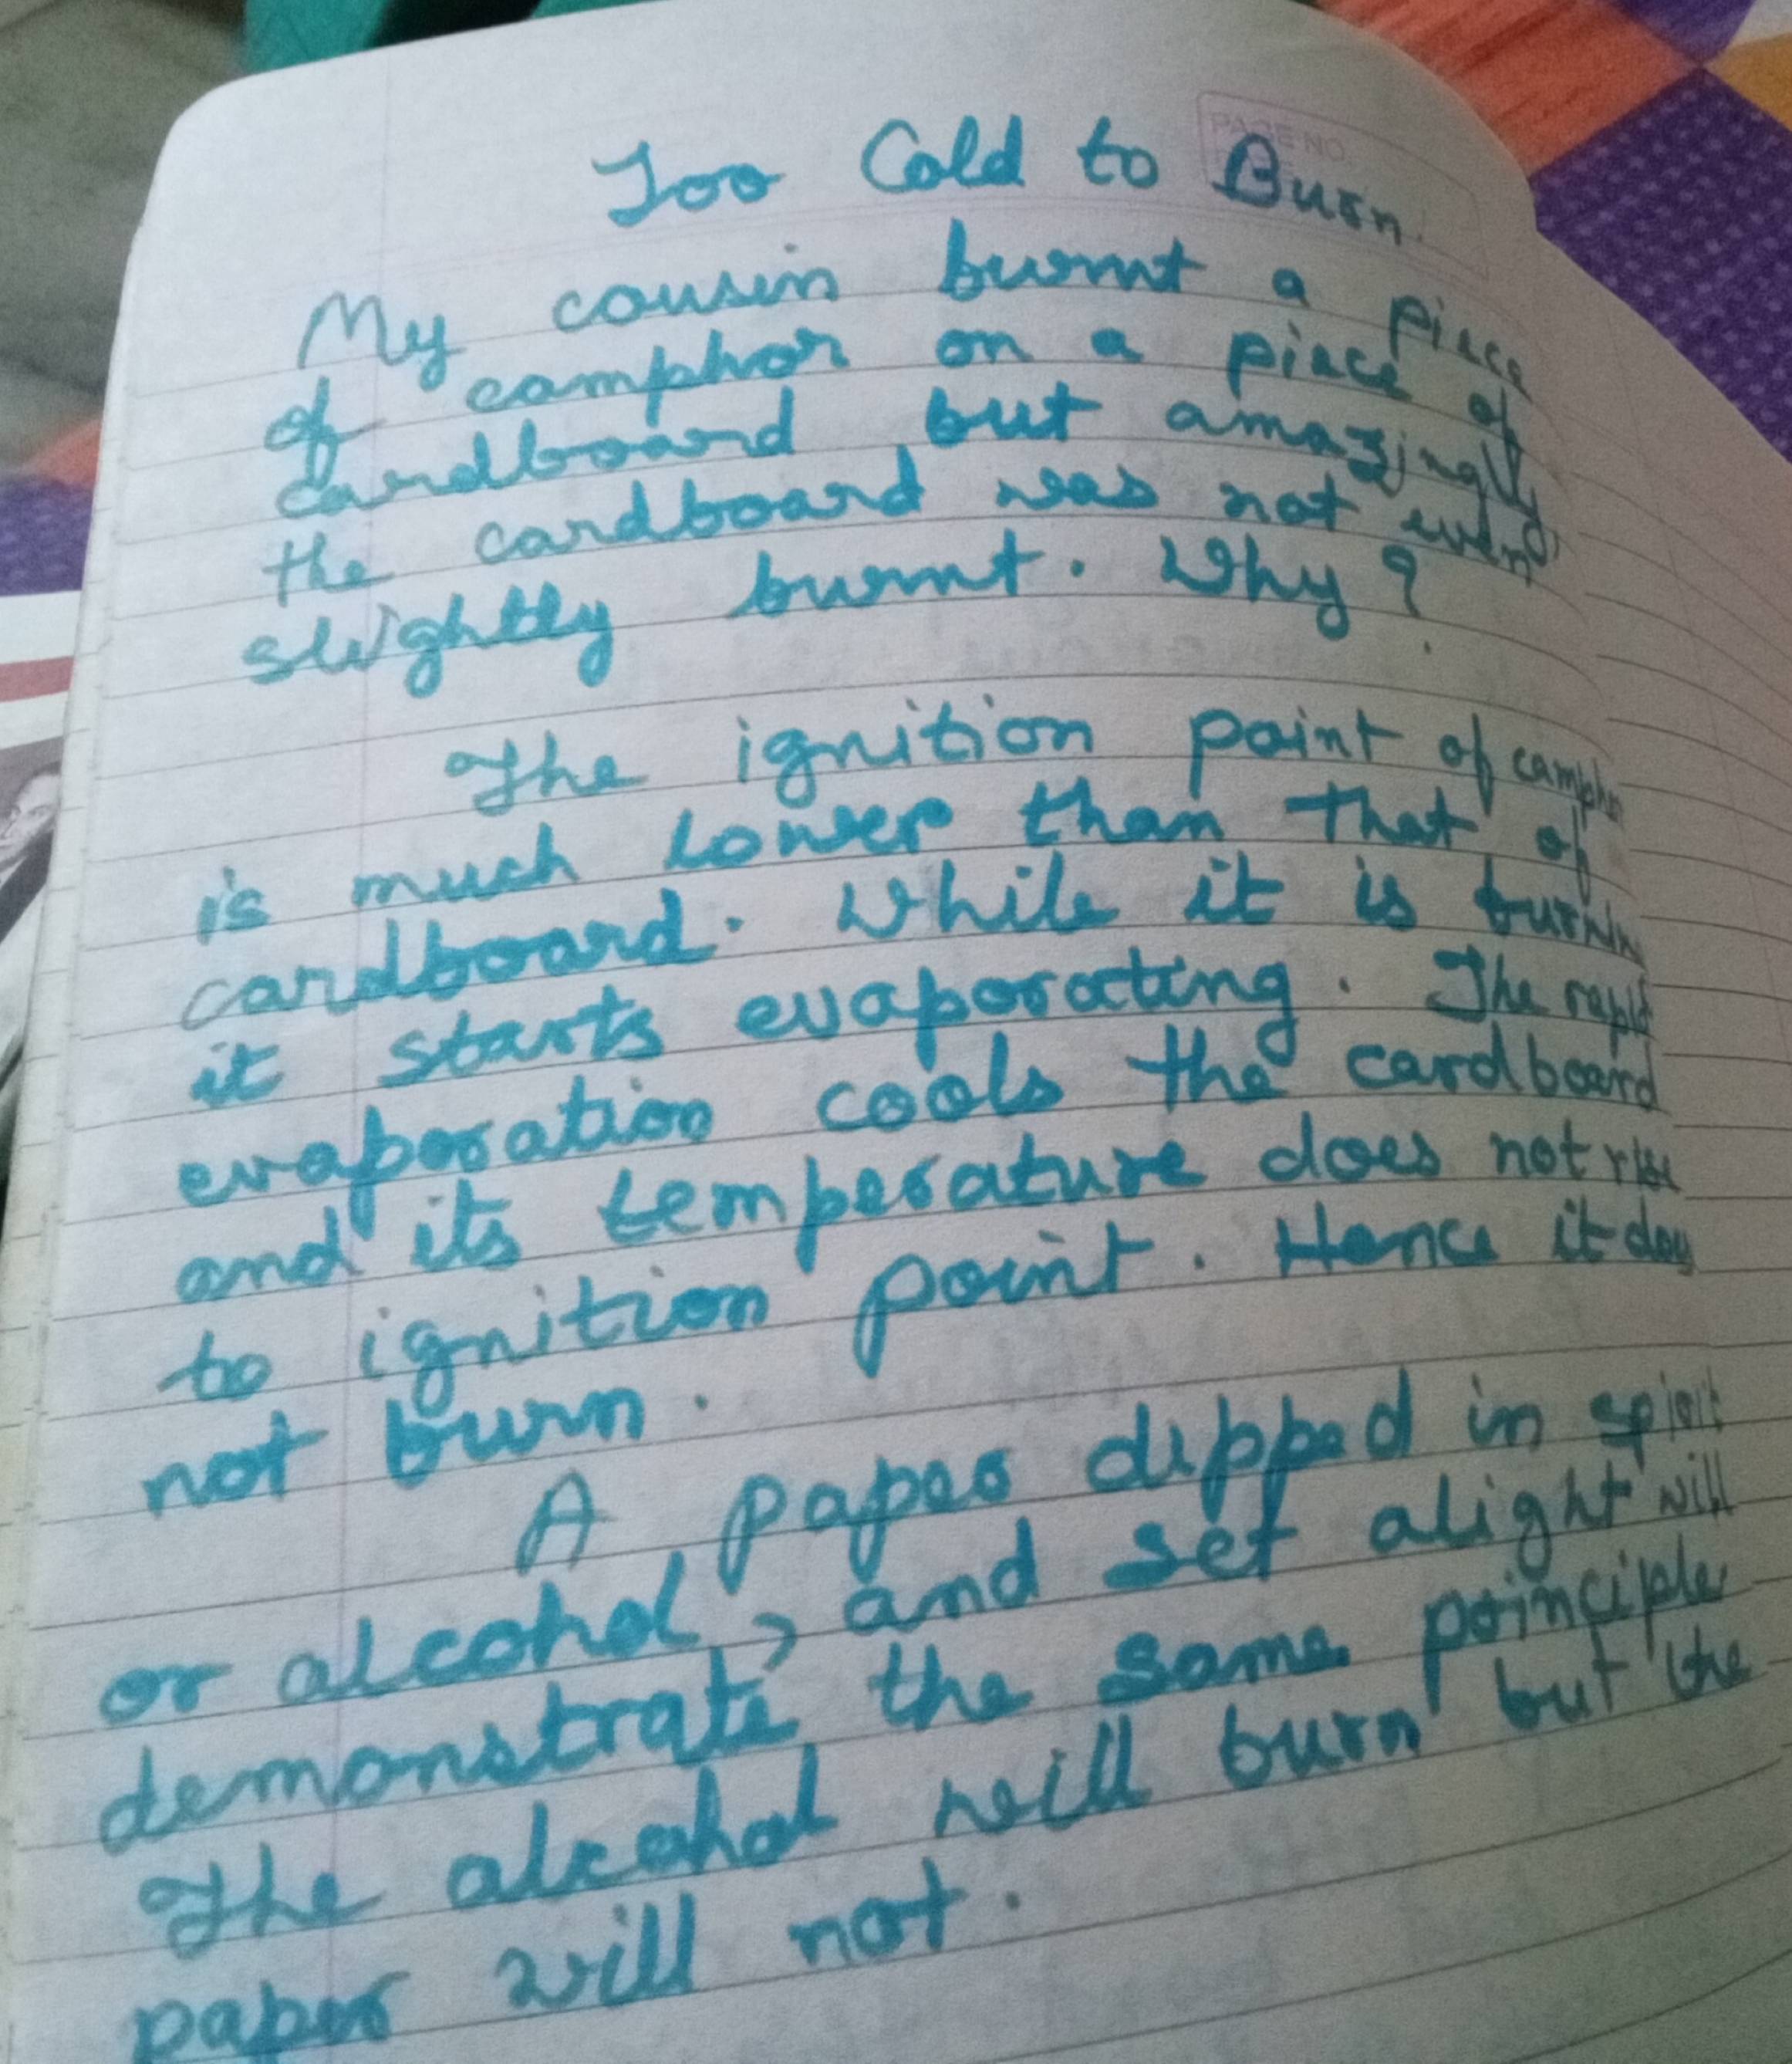 PAGE NO.
Too Cold to Burn
My cousin burnt a piece
of camphor on a piece of
cardboard but amazingly
the cardboard was not even
slightly burnt. Why?
The ignition point of camphor
is much lower than that of
cardboard. While it is burning
it starts evaporating. The rapid
evaporation cools the cardboard
and its temperature does not rise
to ignition point. Hence it does
not burn.
A paper dipped in spirit
or alcohol, and set alight will
demonstrate the same principle
The alcohol will burn but the
paper will not.